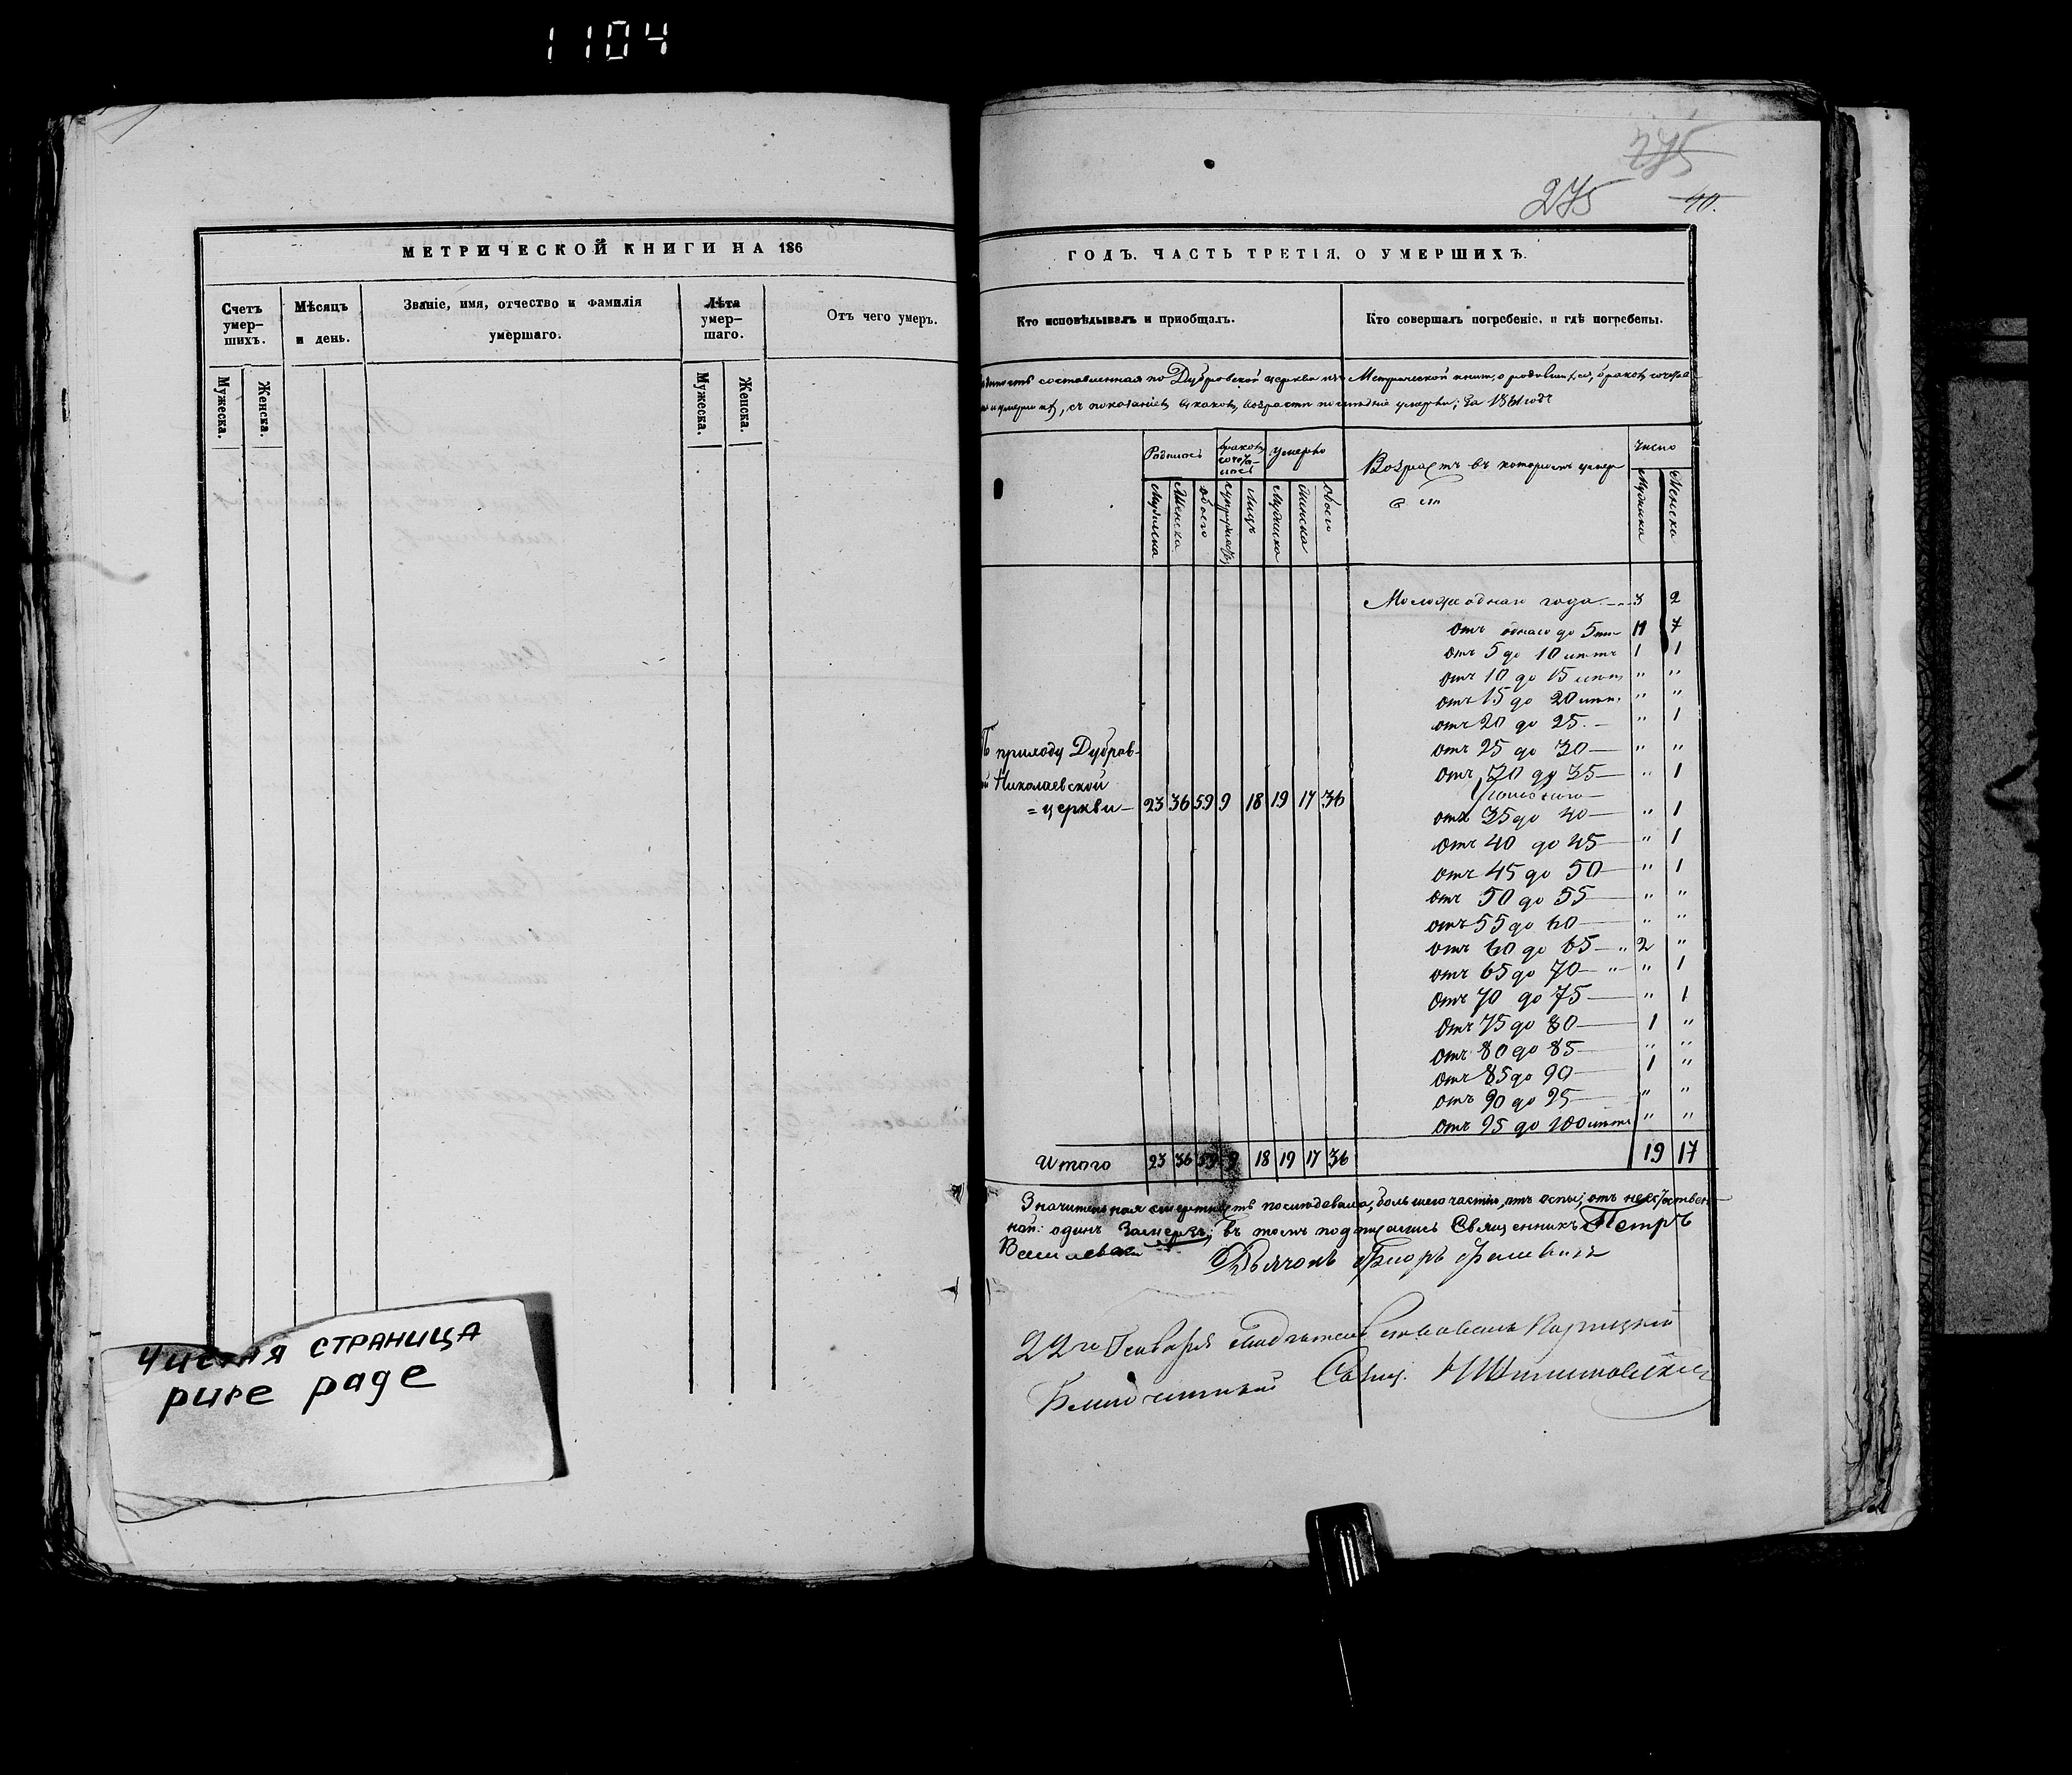 1104
275
275
40.
МЕТРИЧЕСКОЙ КНИГИ НА 186
Счетъ умер-шихъ.
Мѣсяцъ и день.
Званіе, имя, отчество и фамилія умершаго.
Лѣта умер-шаго.
Отъ чего умеръ.
Мужеска.
Женска.
Мужеска.
Женска.
Чистая страница
pure page
ГОДЪ. ЧАСТЬ ТРЕТІЯ, О УМЕРШИХЪ.
Кто исповѣдывалъ и пріобщалъ.
Кто совершалъ погребеніе, и гдѣ погребены.
составленная по Дубровской церкви изъ Метрической книги, о родившихся, бракомъ
съ показаніемъ возрасти умерли; за 1861 годъ
Родилось
Умерло
Возрастъ въ которомъ умер
Число
Мужеска
Женска
обоего
супружествъ
Лицъ
Мужеска
Женска
обоего
Мужеска
Женска
Моложе однаго года 3 2
отъ однаго до 5 11 7
отъ 5 до 10 лѣтъ 1 1
отъ 10 до 15 лѣтъ " "
отъ 15 до 20 лѣтъ " "
отъ 20 до 25 " 1
отъ 25 до 30 " "
отъ 30 до 35 " 1
отъ 35 до 40 " 1
отъ 40 до 45 " 1
отъ 45 до 50 " 1
отъ 50 до 55 " "
отъ 55 до 60 " "
отъ 60 до 65 " 2 "
отъ 65 до 70 " " 1
отъ 70 до 75 " 1
отъ 75 до 80 1 "
отъ 80 до 85 " "
отъ 85 до 90 1 "
отъ 90 до 95 " "
отъ 95 до 100 лѣтъ " "
приходу Дубров-
Николаевской
=церкви- 23 36 59 9 18 19 17 36
Итого 23 36 59 9 18 19 17 36 19 17
Значительная смертность послѣдовала, большею частію, отъ оспы; отъ
ной: одинъ Замерзъ; въ томъ подписались Священникъ Петръ
Василевскій
Дьячокъ
22го Января
Благочинный Свящ.